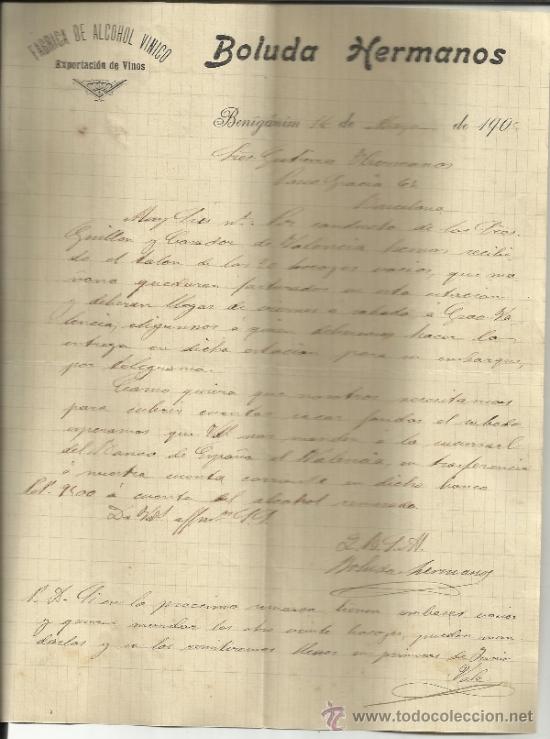 FABRICA DE ALCOHOL VINICO
Exportación de Vinos
Boluda Hermanos
Benigánim 14 de Mayo de 190
Sres Gutierrez Hermanos
Paseo Gracia 62
Barcelona
Muy Sres nº. Por conducto de los Sres.
Guillen y Cazador de Valencia hemos recibi-
do el talon de los 20 bocoyes vacios, que ma-
ñana quedaran facturados en esta estacion
y deberan llegar de viernes a sabado a Grao-Va-
lencia, diganos á quien debemos hacer la
entrega en dicha estacion para su embarque,
por telegrama.
Como quiera que nosotros necesitamos
para cubrir cuentas sacar fondos el sabado
esperamos que Vds nos manden a la sucursal
del Banco de España de Valencia, en trasferencia
á nuestra cuenta corriente en dicho banco
Pts. 9500 á cuenta del alcohol remesado.
De Vds affmos S.S.
Q.B.S.M.
Boluda hermanos
P.D. Si en la proxima remesa tienen embases vacios
y quieren mandar los otro veinte bocoyes, pueden man-
darlos y se los remitiremos llenos en primeros de Junio
Vale
www.todocoleccion.net